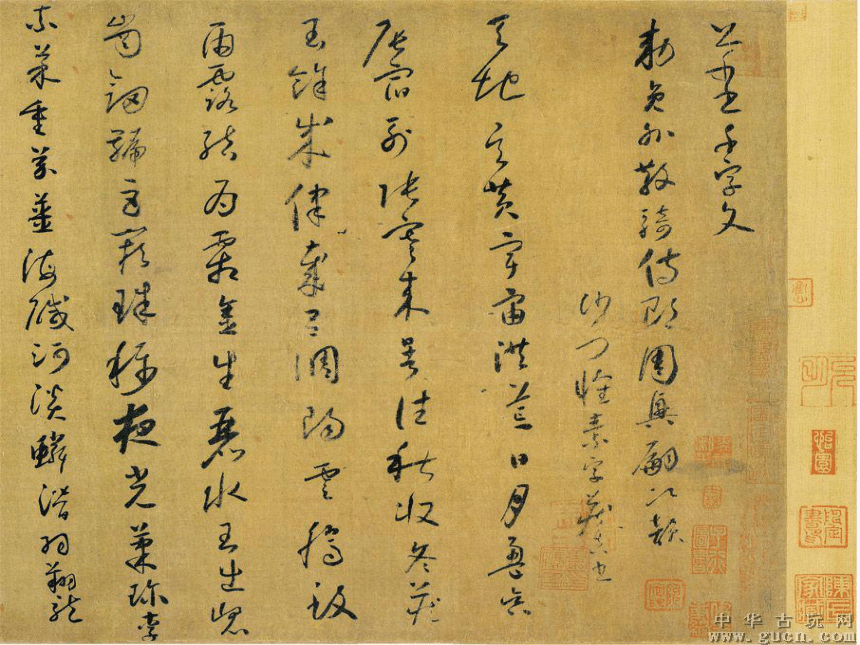 千字文
敕員外散騎侍郎周興嗣次韻
沙門懷素字藏真書
天地玄黃宇宙洪荒日月盈昃
辰宿列張寒來暑往秋收冬藏
閏餘成律歲呂調陽雲騰致
雨露結為霜金生麗水玉出崑
崗劍號巨闕珠稱夜光菓珍李
柰菜重芥薑海鹹河淡鱗潛羽翔龍
中华古玩网
www.gucn.com